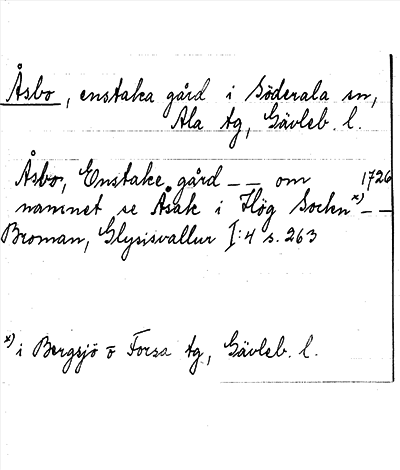 Åsbo, enstaka gård i Söderala sn,
Ala tg, Gävleb. l.
Åsbo, Enstake gård – – om 1726
namnet se Åsak i Hög Sockn x) – –
Broman, Glysisvallur I:4 s. 263
x) i Bergsjö o Forsa tg, Gävleb. l.